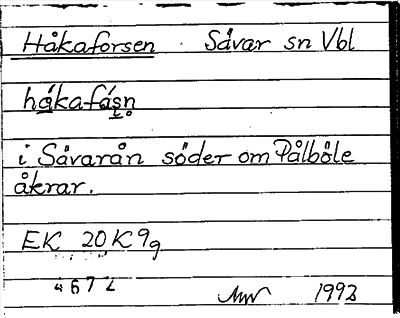 Håkaforsen Sävar sn Vbl
håkafåsn
i Sävarån söder om Pålböle
åkrar.
EK 20K 9g
4672
1993